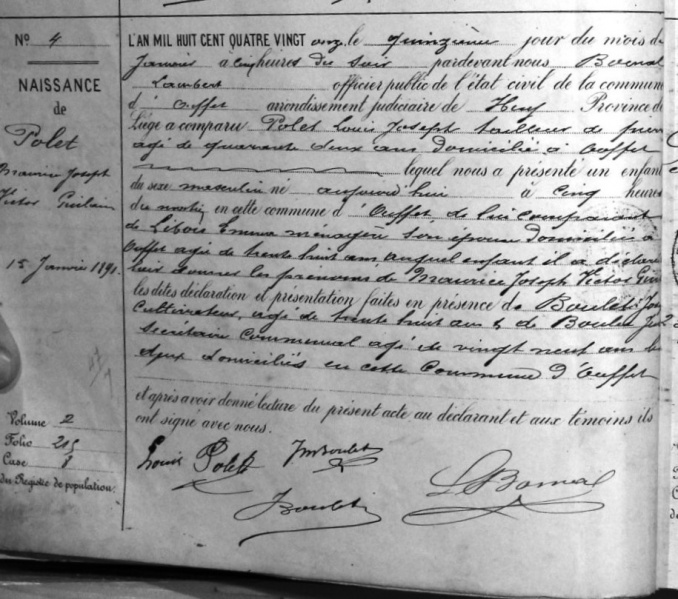 N° 4
NAISSANCE
de
Polet
Maurice Joseph
Victor Ghislain
15 Janvier 1891.
Volume 2
Folio 215
Case 8
du Registre de population.
L'AN MIL HUIT CENT QUATRE VINGT onze, le quinzième jour du mois de
Janvier à cinq heures du soir pardevant nous Bomal
Lambert officier public de l'état civil de la commune
d' Ouffet arrondissement judiciaire de Huy Province de
Liége a comparu Polet Louis Joseph tailleur de pierre
âgé de quarante deux ans domicilié à Ouffet
lequel nous a présenté un enfant
du sexe masculin né aujourd'hui à cinq heures
du matin en cette commune d' Ouffet, de lui comparant
de Libois Emma ménagère son épouse domiciliée à
Ouffet agée de trente huit ans, auquel enfant il a déclaré
donner les prénoms de Maurice Joseph Victor
les dites déclaration et présentation faites en présence de Boulet
Cultivateur, agé de trente huit ans & de Boulet
Secrétaire communal agé de vingt neuf ans
deux domiciliés en cette Commune d'Ouffet
et après avoir donné lecture du présent acte au déclarant et aux témoins ils
ont signé avec nous.
Louis Polet JMBoulet
JBoulet LBomal